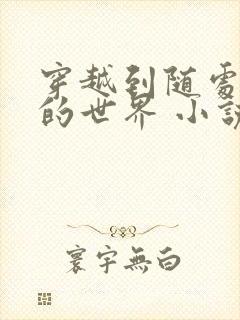 穿越到随处
的世界 小说
寰宇無白